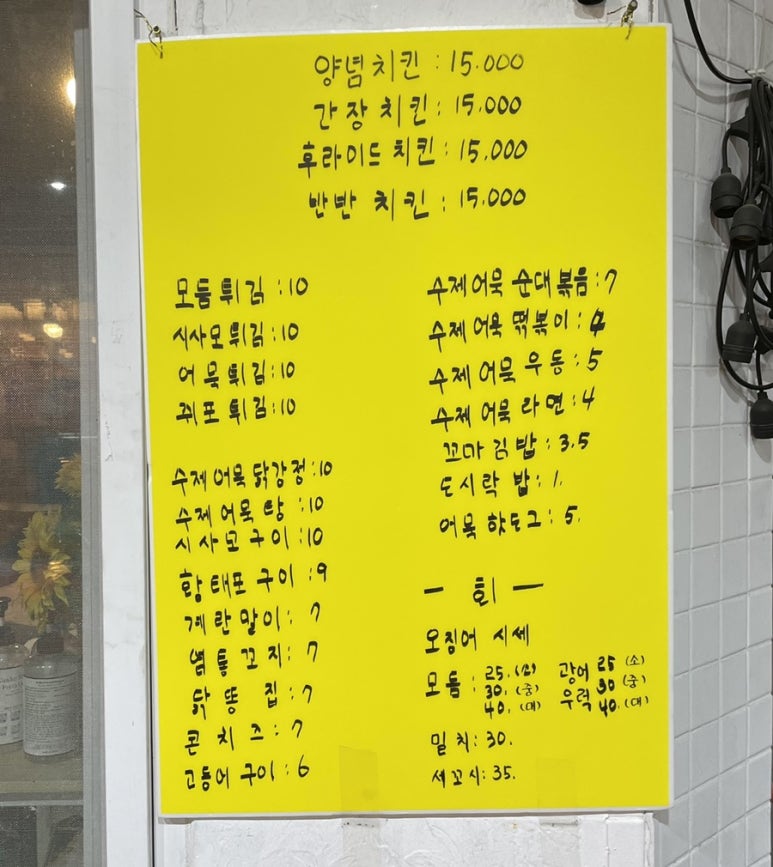 양념치킨 : 15.000
간장치킨 : 15.000
후라이드치킨 : 15.000
반반 치킨 : 15.000
모듬튀김 : 10
시사모튀김 : 10
어묵튀김 : 10
쥐포튀김 : 10
수제어묵닭강정 : 10
수제어묵탕 : 10
시사모구이 : 10
황태포구이 : 9
계란말이 : 7
염통꼬지 : 7
닭똥집 : 7
콘치즈 : 7
고등어구이 : 6
수제어묵 순대볶음 : 7
수제어묵 떡볶이 : 4
수제어묵우동 : 5
수제어묵라면 : 4
꼬마김밥 : 3.5
도시락밥 : 1.
어묵핫도그 : 5.
- 회 -
오징어 시세
모듬 : 25. (소)
30. (중)
40. (대)
광어 25 (소)
우럭 30 (중)
40. (대)
밀치 : 30.
세꼬시 : 35.